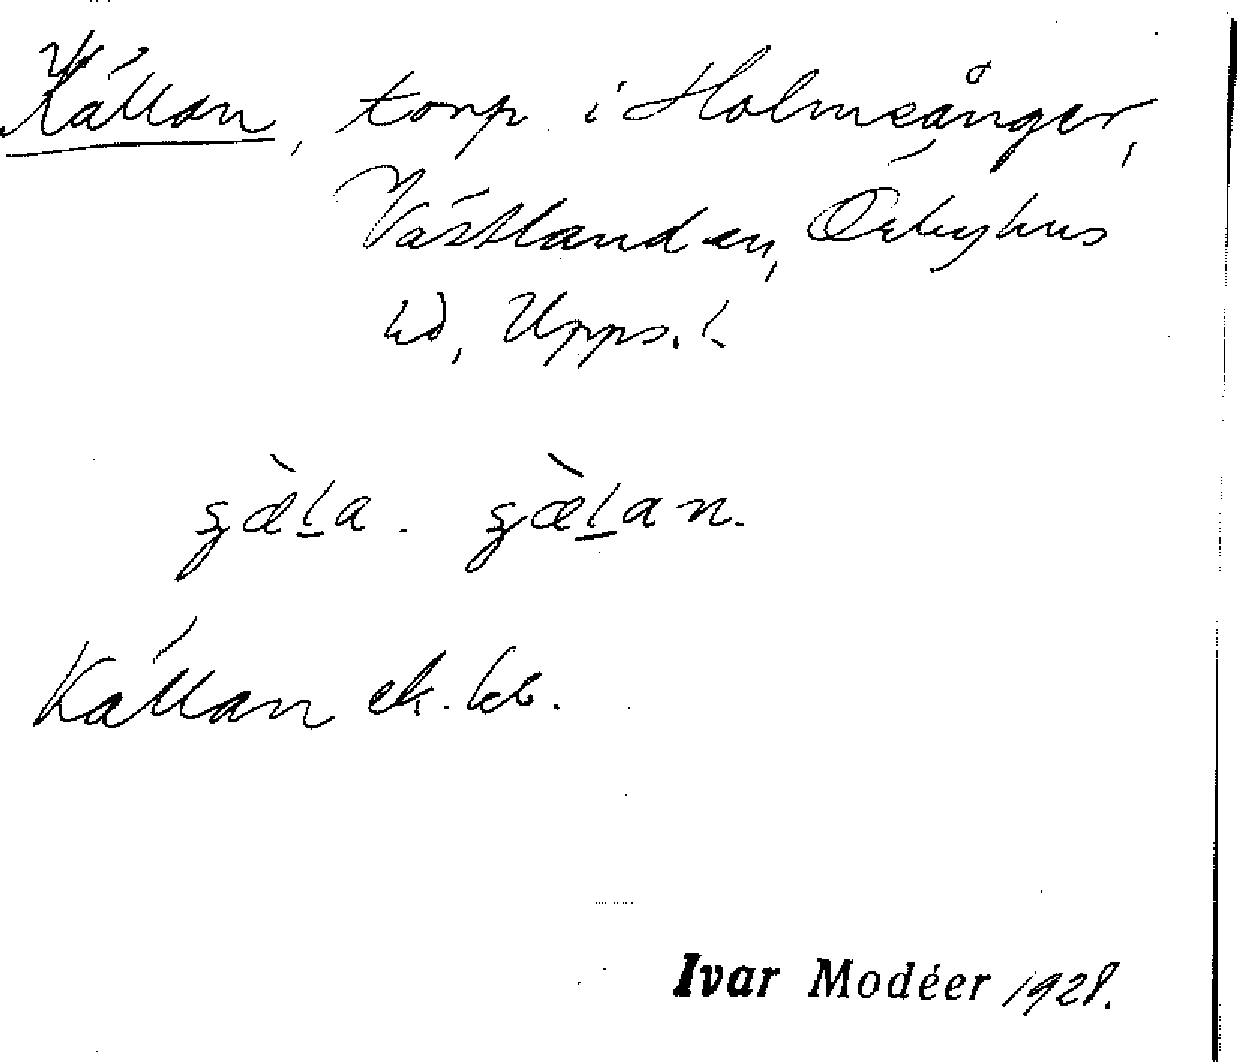 Källan, torp i Holmsånger,
Västland sn, Örbyhus
hd, Upps. l.
Källan ek. kb.
Ivar Modéer 1928.